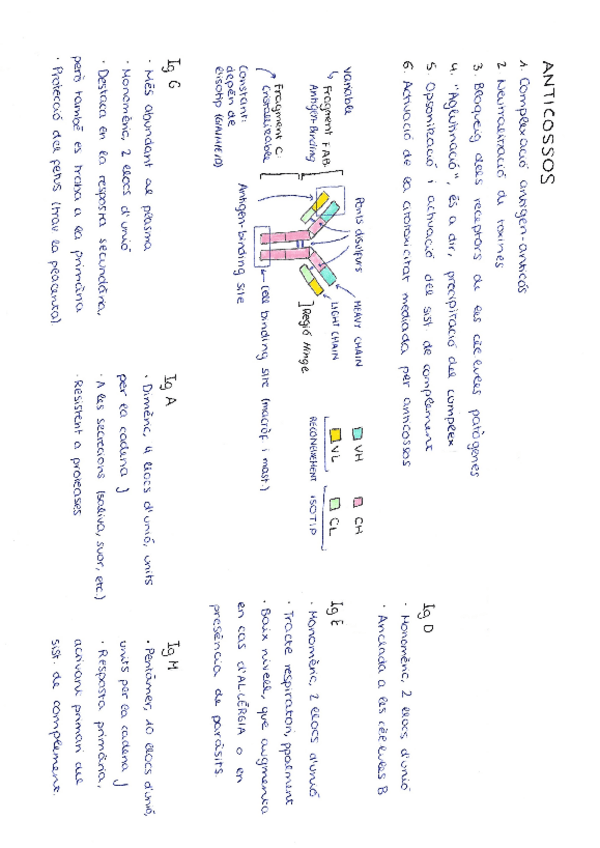 ANTICOSSOS
1. Complexació antigen-anticòs
2. Neutralització de toxines
3. Bloqueig dels receptors de les cèl·lules patògenes
4. "Aglutinació", és a dir, precipitació del complex
5. Opsonització i activació del sist de complement
6. Activació de la citotoxicitat mediada per anticossos
Variable
Fragment FAB
Antigen Binding
Fragment C:
Cristal·litzable
Constant:
depèn de
Ponts disulfurs
HEAVY CHAIN
LIGHT CHAIN
Regió Hinge
Cell binding site (macròf. i mast.)
Antigen-binding site
VH
CH
VL
CL
RECONEIXEMENT
ISOTIP
Ig D
· Monomèric, 2 llocs d'unió
· Anclada a les cèl·lules B
Ig E
· Monomèric, 2 llocs d'unió
· Tracte respiratori, ppalment
· Baix nivell, que augmenta
en cas d'AL·LÈRGIA o en
presència de paràsits.
Ig G
· Més abundant al plasma
· Monomèric, 2 llocs d'unió
· Destaca en la resposta secundària,
però també es troba a la primària
· Protecció del fetus (trav la placenta)
Ig A
· Dimèric, 4 llocs d'unió, units
per la cadena J
· A les secrecions (saliva, suor, etc.)
· Resistent a proteases
Ig M
· Pentàmer, 10 llocs d'unió,
units per la cadena J
· Resposta primària,
activant primari del
sist. de complement.